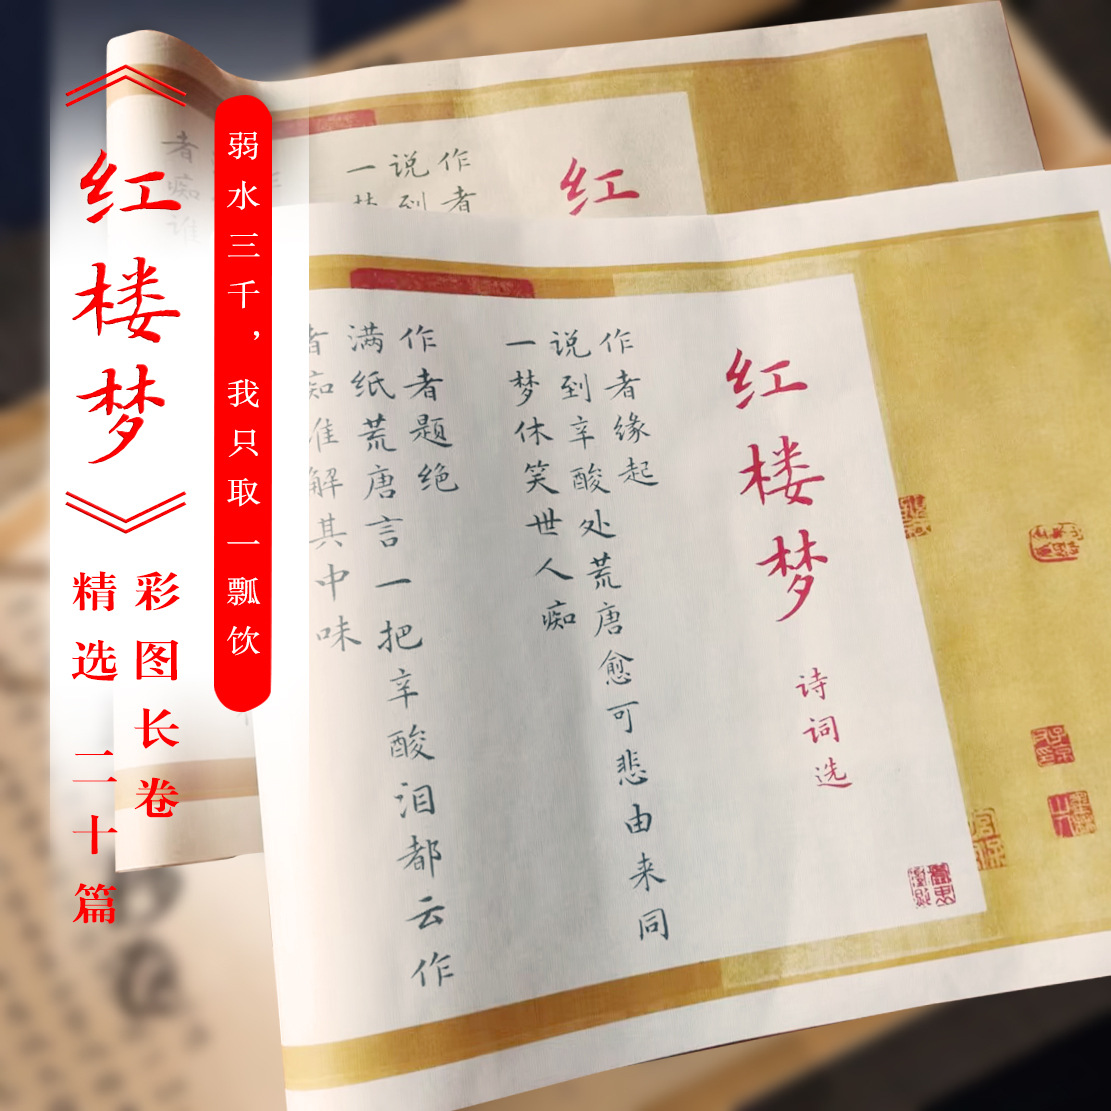 《红楼梦》
彩图长卷
精选 二十篇
弱水三千，我只取一瓢饮
红
作者
说到
一梦
者痴谁
红楼梦
诗词选
作者缘起
说到辛酸处荒唐愈可悲由来同
一梦休笑世人痴
作者题绝
满纸荒唐言一把辛酸泪都云作
者痴谁解其中味